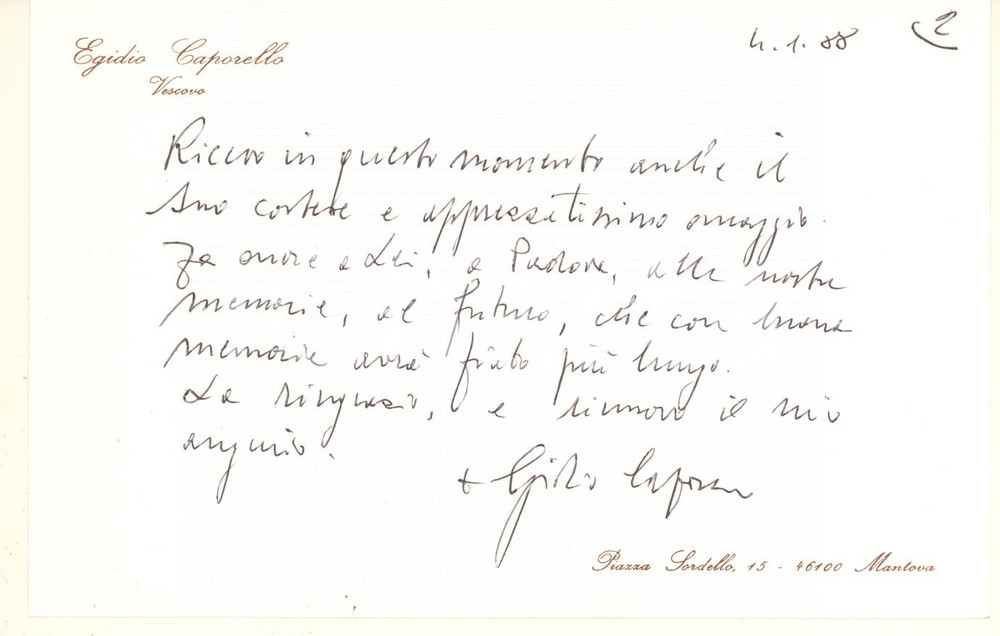 Egidio Caporello
Vescovo
4.1.88
2
Ricevo in questo momento anche il
Suo cortese e apprezzatissimo omaggio.
Fa onore a Lei, a Padova, alla nostra
memoria, al futuro, che con buona
memoria avrà fiato più lungo.
La ringrazio, e rinnovo il mio
augurio.
+ Egidio Caporello
Piazza Sordello, 15 - 46100 Mantova